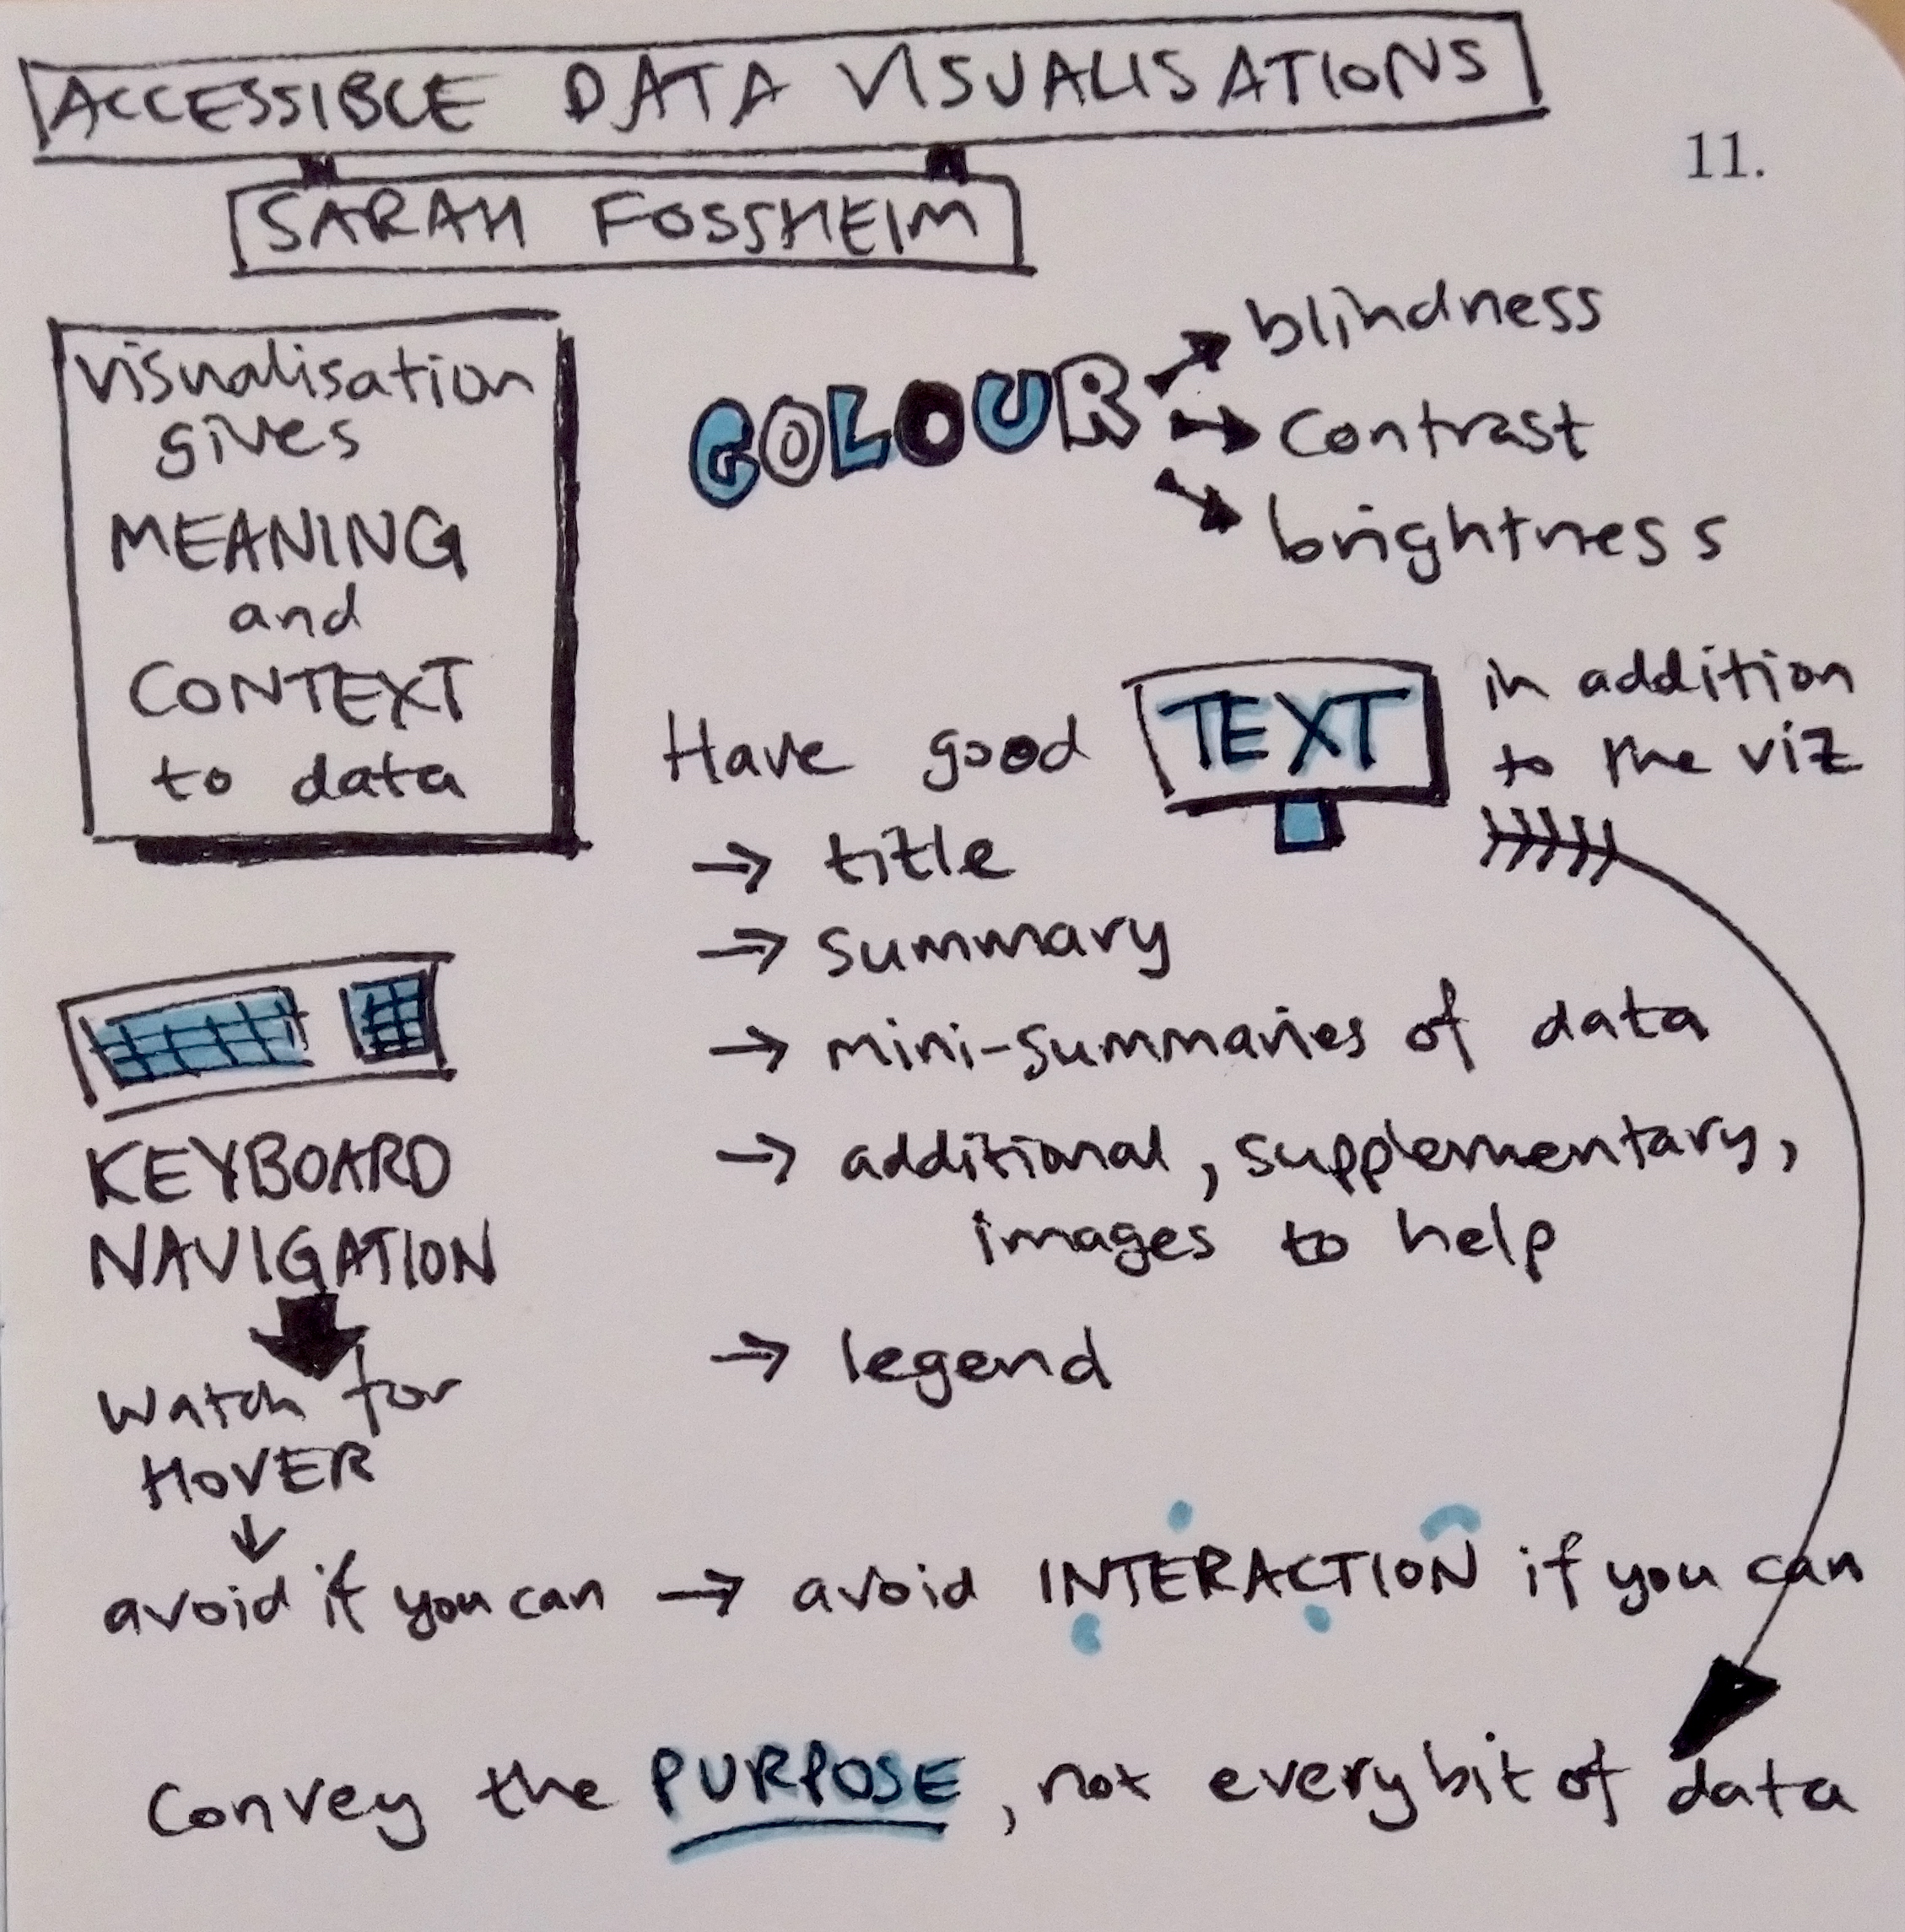 ACCESSIBLE DATA VISUALISATIONS
11.
SARAH FOSSHEIM
visualisation
gives
MEANING
and
CONTEXT
to data
COLOUR
blindness
contrast
brightness
Have good TEXT in addition
to the viz
→ title
→ summary
→ mini-summaries of data
→ additional, supplementary,
images to help
→ legend
KEYBOARD
NAVIGATION
Watch for
HOVER
↓
avoid if you can → avoid INTERACTION if you can
Convey the PURPOSE, not every bit of data